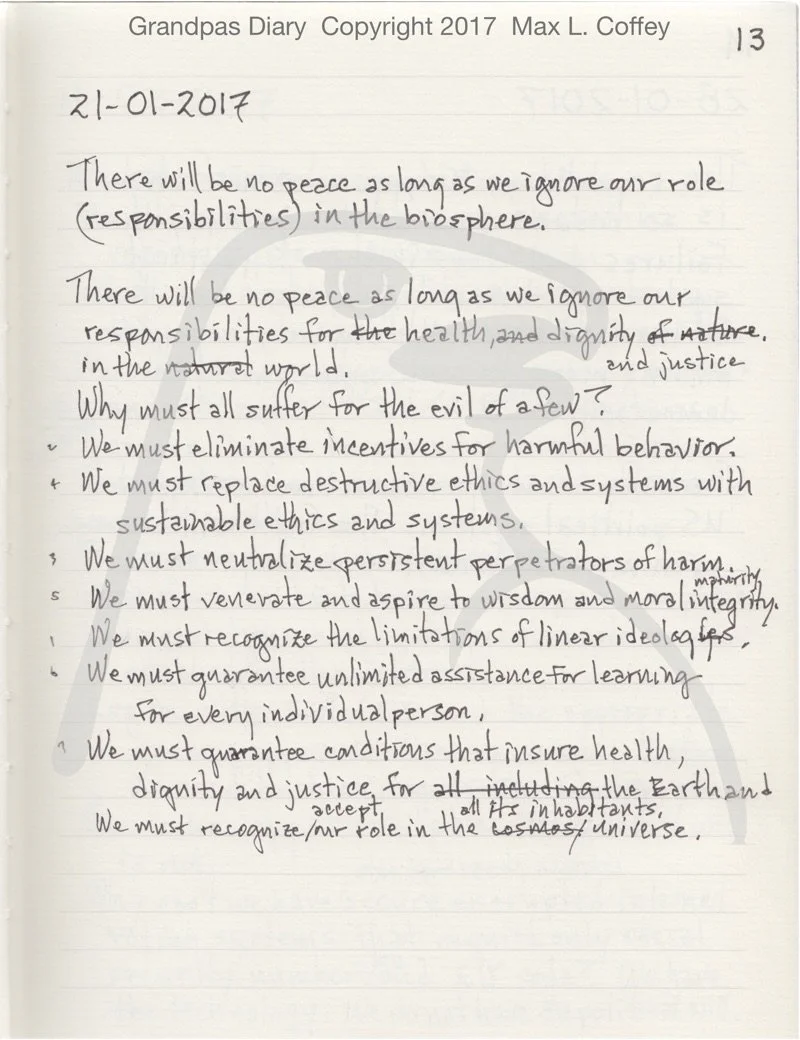 Grandpas Diary Copyright 2017 Max L. Coffey
13
21-01-2017
There will be no peace as long as we ignore our role
(responsibilities) in the biosphere.
There will be no peace as long as we ignore our
responsibilities for the health, and dignity of nature.
and justice
in the natural world.
Why must all suffer for the evil of a few?
2 We must eliminate incentives for harmful behavior.
4 We must replace destructive ethics and systems with
sustainable ethics and systems.
3 We must neutralize persistent perpetrators of harm.
maturity
5 We must venerate and aspire to wisdom and moral integrity.
1 We must recognize the limitations of linear ideologies.
6 We must guarantee unlimited assistance for learning
for every individual person.
7 We must guarantee conditions that insure health,
dignity and justice for all including the Earth and
all its inhabitants.
accept
We must recognize/our role in the cosmos/universe.